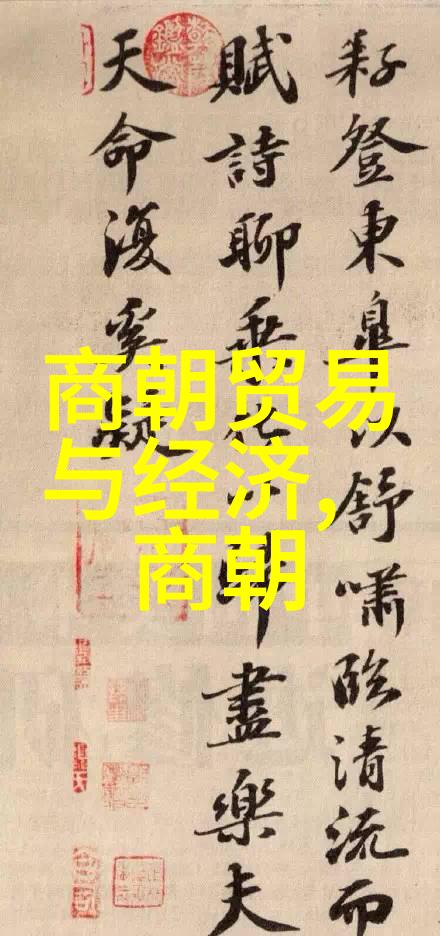 耔登東皐以舒嘯臨清流而
賦詩聊乘化以歸盡樂夫
天命復奚疑
商朝贸易
与经济,
商朝